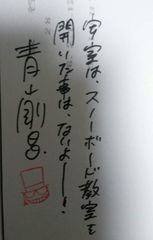 安室は、スノーボード教室を
開いた事は、ないよー!
青山剛昌